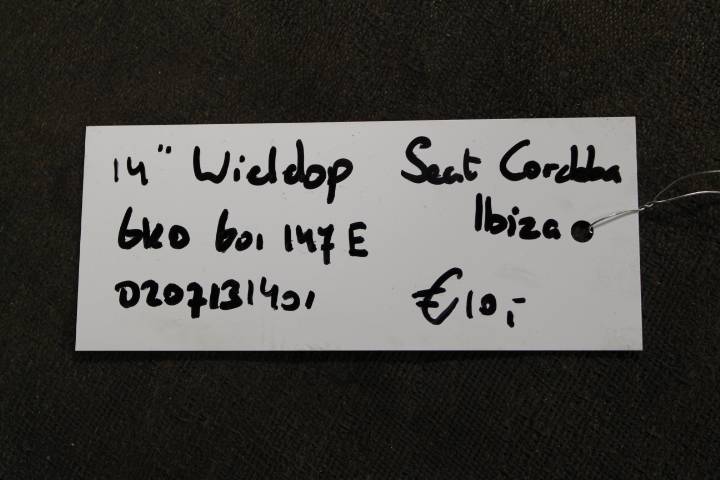 14" Wieldop Seat Cordoba
Ibiza
6K0 601 147 E
0207131401
€10,-